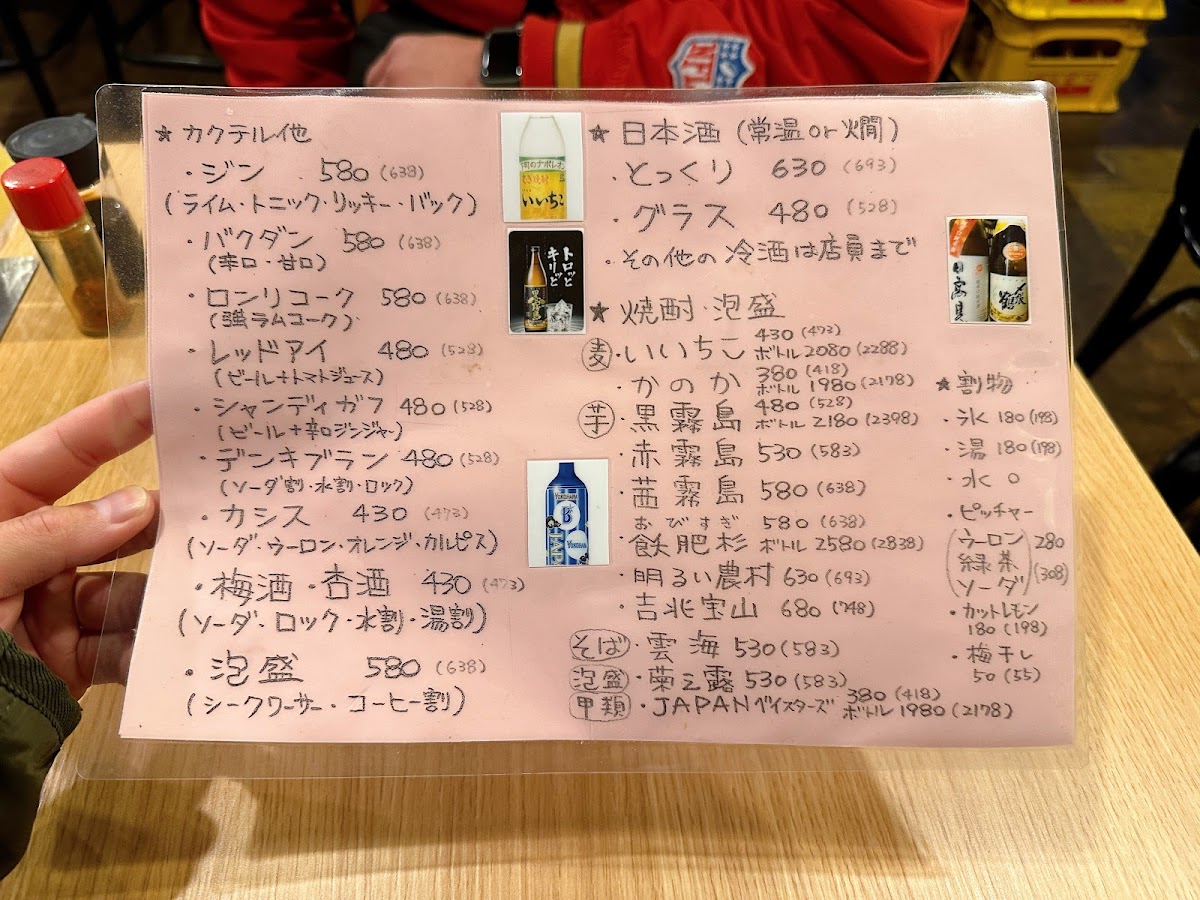 ★カクテル他
・ジン 580 (638)
(ライム・トニック・リッキー・バック)
・バクダン 580 (638)
(辛口・甘口)
・ロンリコーク 580 (638)
(強ラムコーク)
・レッドアイ 480 (528)
(ビール+トマトジュース)
・シャンディガフ 480 (528)
(ビール+辛口ジンジャー)
・デンキブラン 480 (528)
(ソーダ割・水割・ロック)
・カシス 430 (473)
(ソーダ・ウーロン・オレンジ・カルピス)
・梅酒・杏酒 430 (473)
(ソーダ・ロック・水割・湯割)
・泡盛 580 (638)
(シークワーサー・コーヒー割)
いいちこ
トロッと
キリッと
YOKOHAMA
JAPAN
NFL
★日本酒 (常温or燗)
・とっくり 630 (693)
・グラス 480 (528)
・その他の冷酒は店員まで
日高見
★焼酎・泡盛
麦・いいちこ 430 (473)
ボトル 2080 (2288)
・かのか 380 (418)
ボトル 1980 (2178)
芋・黒霧島 480 (528)
ボトル 2180 (2398)
・赤霧島 530 (583)
・茜霧島 580 (638)
おびすぎ
・飫肥杉 580 (638)
ボトル 2580 (2838)
・明るい農村 630 (693)
・吉北宝山 680 (748)
そば・雲海 530 (583)
泡盛・菊之露 530 (583)
甲類・JAPANベイスターズ 380 (418)
ボトル 1980 (2178)
★割物
・氷 180 (198)
・湯 180 (198)
・水 0
・ピッチャー
(ウーロン
緑茶
ソーダ) 280 (308)
・カットレモン
180 (198)
・梅干し
50 (55)